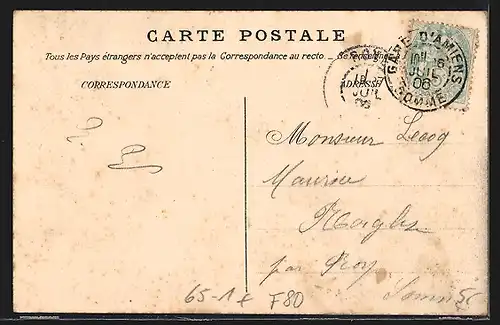 CARTE POSTALE
Tous les Pays étrangers n'acceptent pas la Correspondance au recto. _ Se
CORRESPONDANCE
ADRESSE
GARE D'AMIENS
JUIL
06
SOMME
JUIL
06
Monsieur Lecoq
Maurice
par Roy
Somme
65-1
F80